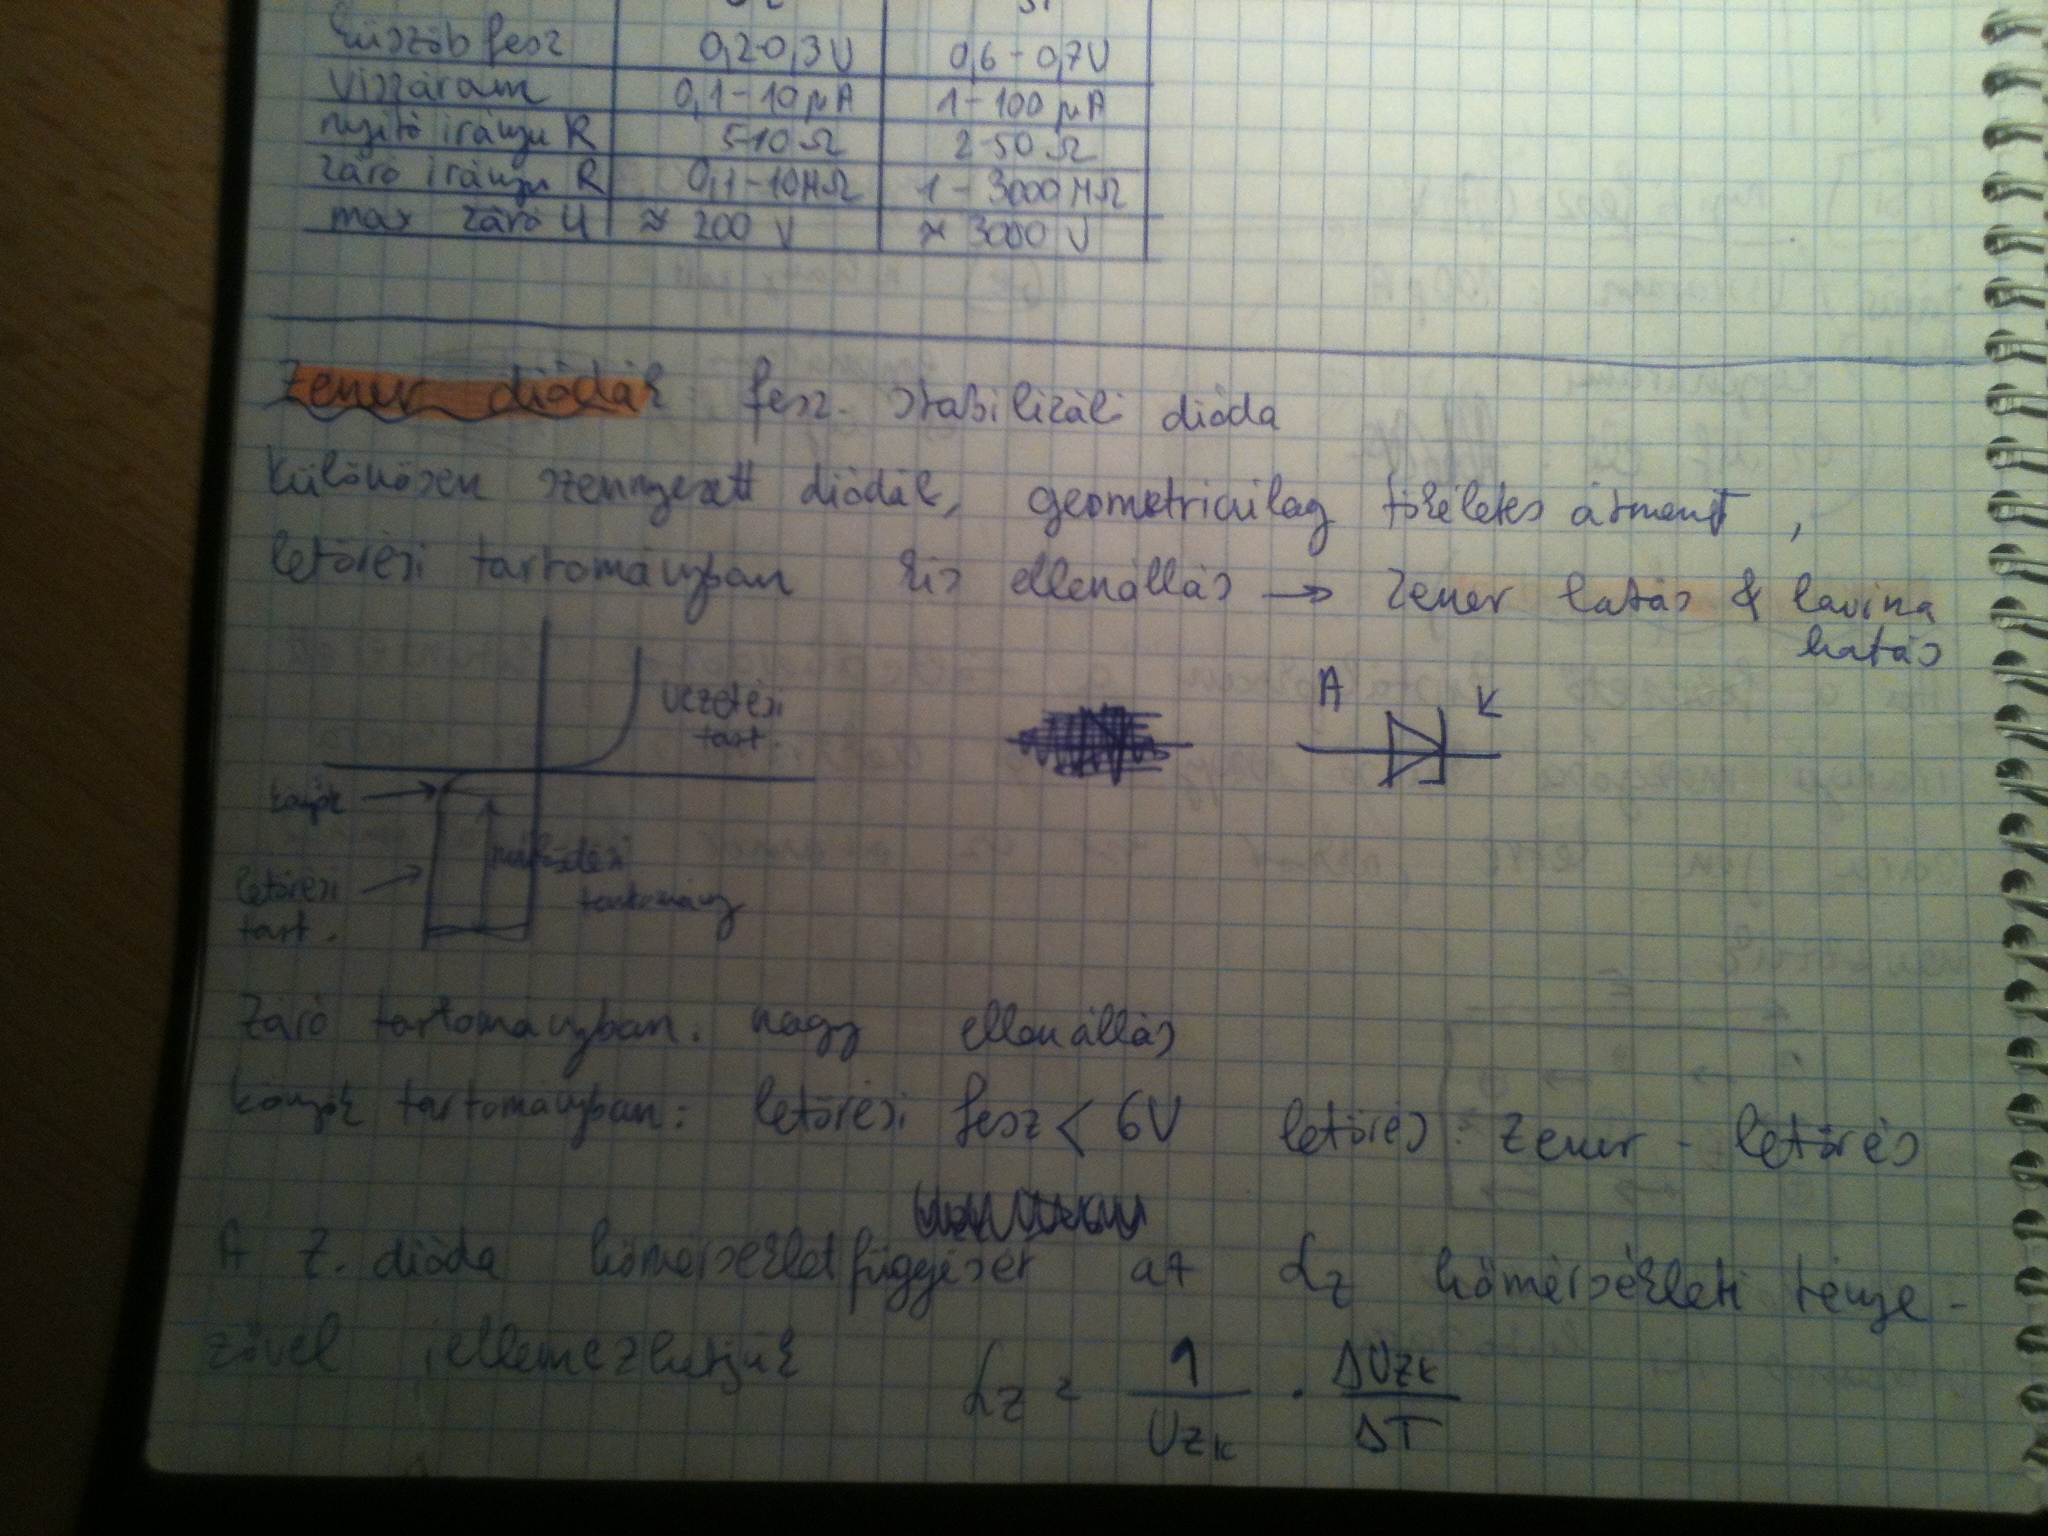 Küszöbfesz 0,2-0,3V 0,6-0,7V
Visszáram 0,1-10 μA 1-100 μA
nyitó irányú R 5-10Ω 2-50Ω
záró irányú R 0,1-10MΩ 1-3000MΩ
max záró U ≈ 200 V ≈ 3000 V
Zener diódák: fesz. stabilizáló dióda
Különösen szennyezett diódák, geometriailag tökéletes átmenet,
letörési tartomanyban kis ellenállás → zener hatás & lavina
hatás
vezetési
tart.
könyök →
letörési →
tart.
működési
tartomány
A K
Záró tartomanyban: nagy ellenállás
könyök tartomanyban: letörési fesz < 6V letörés: zener - letörés
A Z. dióda hőmérséklet függését az αz hőmérsékleti ténye-
zővel jellemezhetjük
αz = 1/Uzk · ΔUzk/ΔT